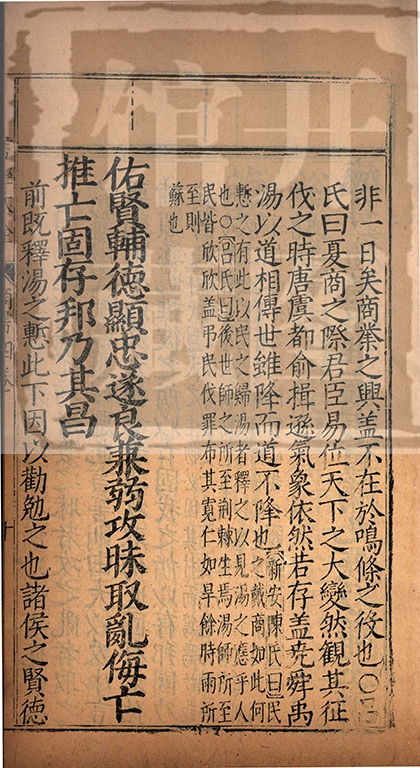 非一日矣商業之興蓋不在於鳴條之役也○呂
氏曰夏商之際君臣易位天下之大變然觀其征
伐之時唐虞都俞揖遜氣象依然若存蓋堯舜禹
湯以道相傳世雖降而道不降也新安陳氏曰民
之戴商如此何
慙之有此以民之歸湯者釋之以見湯之應乎人
也○呂氏曰後世師之所至荊棘生焉湯師所至
民皆欣欣蓋弔民伐罪布其寬仁如旱餘時雨所
至則
蘇也
佑賢輔德顯忠遂良兼弱攻昧取亂侮亡
推亡固存邦乃其昌
前既釋湯之慙此下因以勸勉之也諸侯之賢德